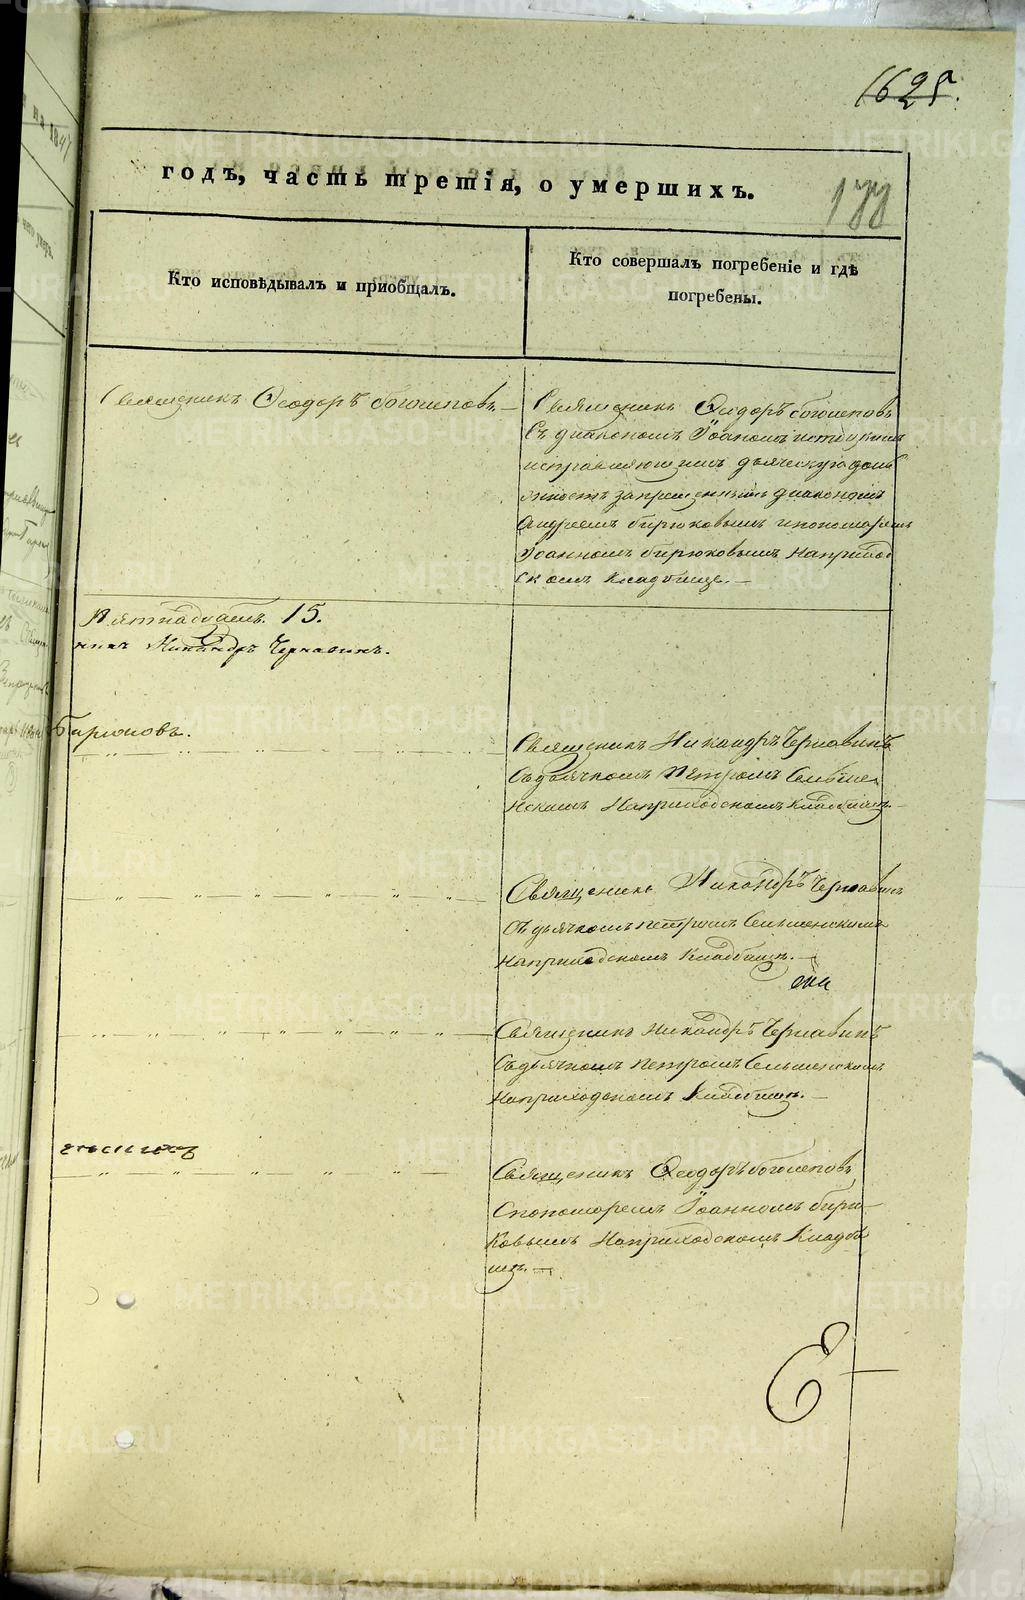 1625.
годъ, часть третія, о умершихъ.
177
Кто исповѣдывалъ и пріобщалъ.
Кто совершалъ погребеніе и гдѣ
погребены.
Священникъ Ѳеодоръ Боголеповъ.
Священникъ Ѳеодоръ Боголеповъ
съ диакономъ Іоаномъ
исправляющимъ дьяческую дол
жность запрещеннымъ диакономъ
Андреемъ Бирюковымъ и пономаремъ
Іоанномъ Бирюковымъ на приход
скомъ кладбище.
Пятнадцать. 15.
Никандръ Чернавинъ.
Бирюковъ.
Священникъ Никандръ Чернавинъ
съ дьячкомъ Петромъ Сельмен
скимъ на приходскомъ кладбищѣ.
Священникъ Никандръ Чернавинъ
съ дьячкомъ Петромъ Сельменскимъ
на приходскомъ кладбищѣ.
Священникъ Никандръ Чернавинъ
съ дьячкомъ Петромъ Сельменскимъ
на приходскомъ кладбищѣ.
Священникъ Ѳеодоръ Боголеповъ
с пономаремъ Іоанномъ Бирю
ковымъ на приходскомъ кладби
щѣ.
METRIKI.GASO-URAL.RU